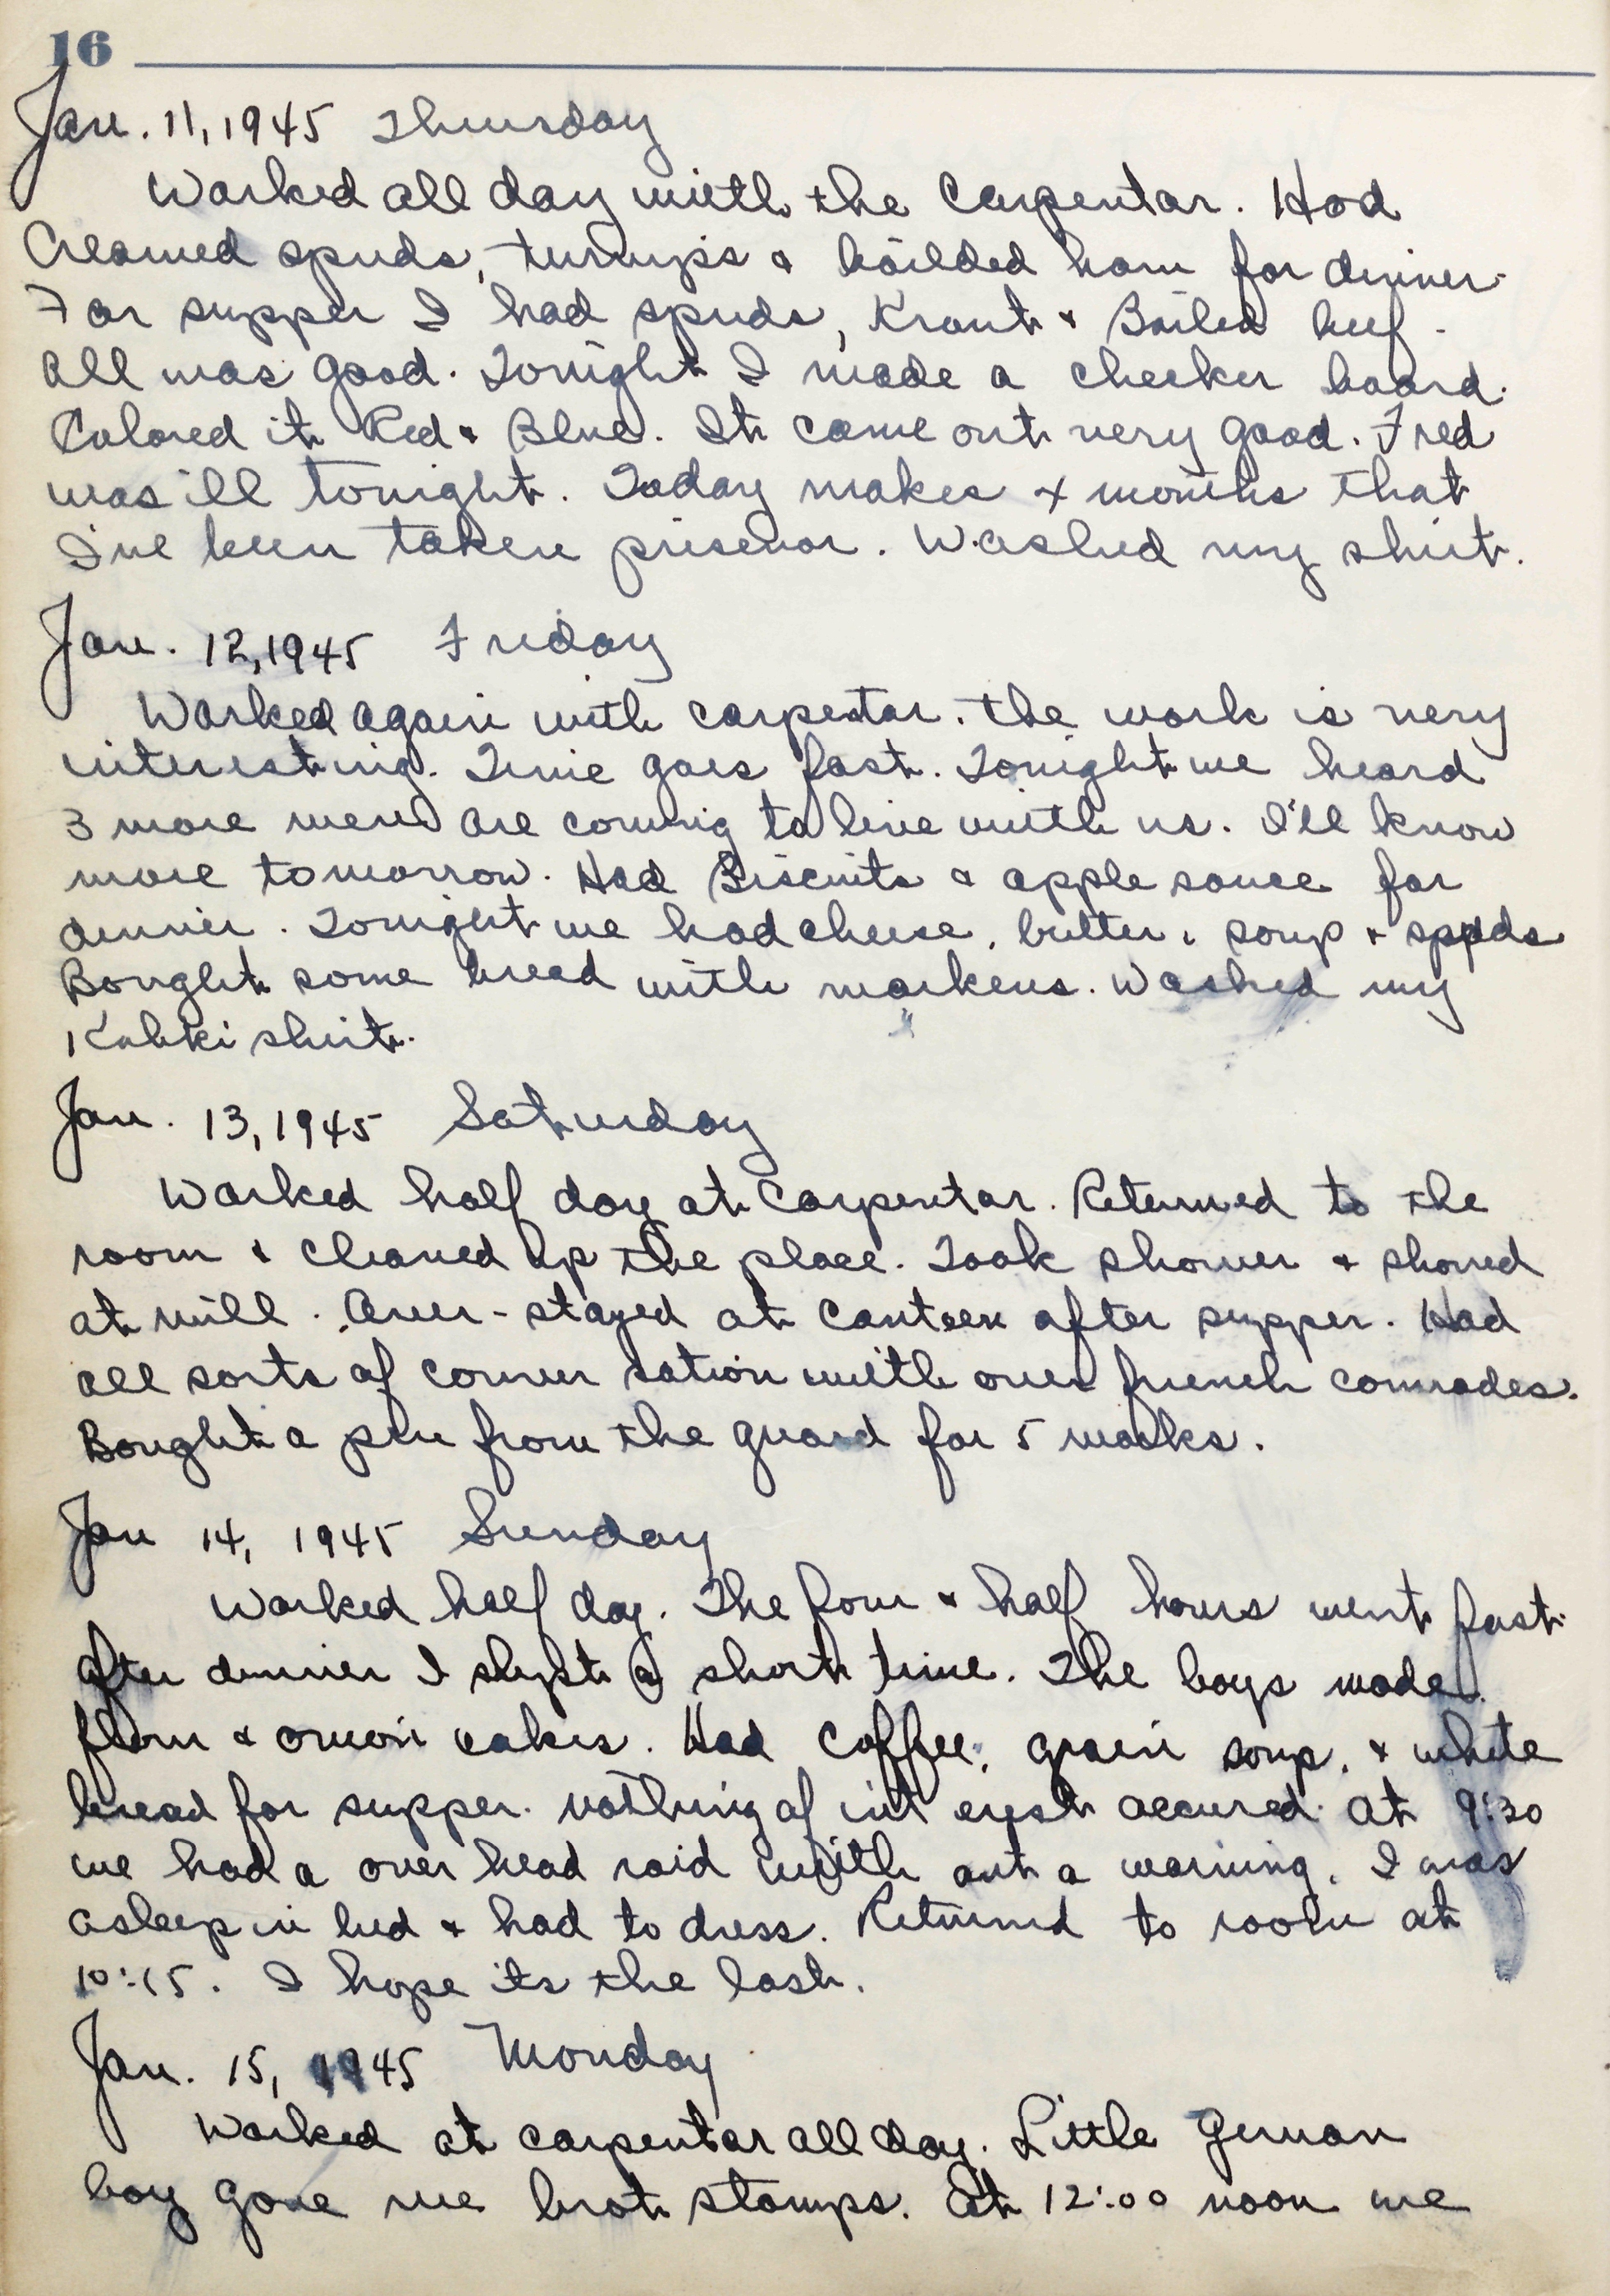 16
Jan. 11, 1945 Thursday
Worked all day with the Carpentar. Had
Creamed spuds, turnips & boilded ham for dinner.
For supper I had spuds, Kraut & Boiled beef.
All was good. Tonight I made a checker board.
Colored it Red & Blue. It came out very good. Fred
was ill tonight. Today makes 4 months that
I've been taken prisenor. Washed my shirt.
Jan. 12, 1945 Friday
Worked again with carpentar. The work is very
interesting. Time goes fast. Tonight we heard
3 more men are coming to live with us. I'll know
more tomorrow. Had Biscuits & apple sauce for
dinner. Tonight we had cheese, butter, soup & spuds
Bought some bread with markens. Washed my
Kahki shirt.
Jan. 13, 1945 Saturday
Worked half day at Carpentar. Returned to the
room & cleaned up the place. Took shower & shaved
at mill. Over-stayed at Canteen after supper. Had
all sorts of conver sation with our french comrades.
Bought a pen from the guard for 5 marks.
Jan 14, 1945 Sunday
Worked half day. The four & half hours went fast.
After dinner I slept a short time. The boys made
flour & onion cakes. Had Coffee, grain soup, & white
bread for supper. Nothing of int erest accured. At 9:30
we had a over head raid with out a warning. I was
asleep in bed & had to dress. Returned to room at
10:15. I hope its the last.
Jan. 15, 1945 Monday
Worked at carpentar all day. Little German
boy gave me brot stamps. At 12:00 noon we